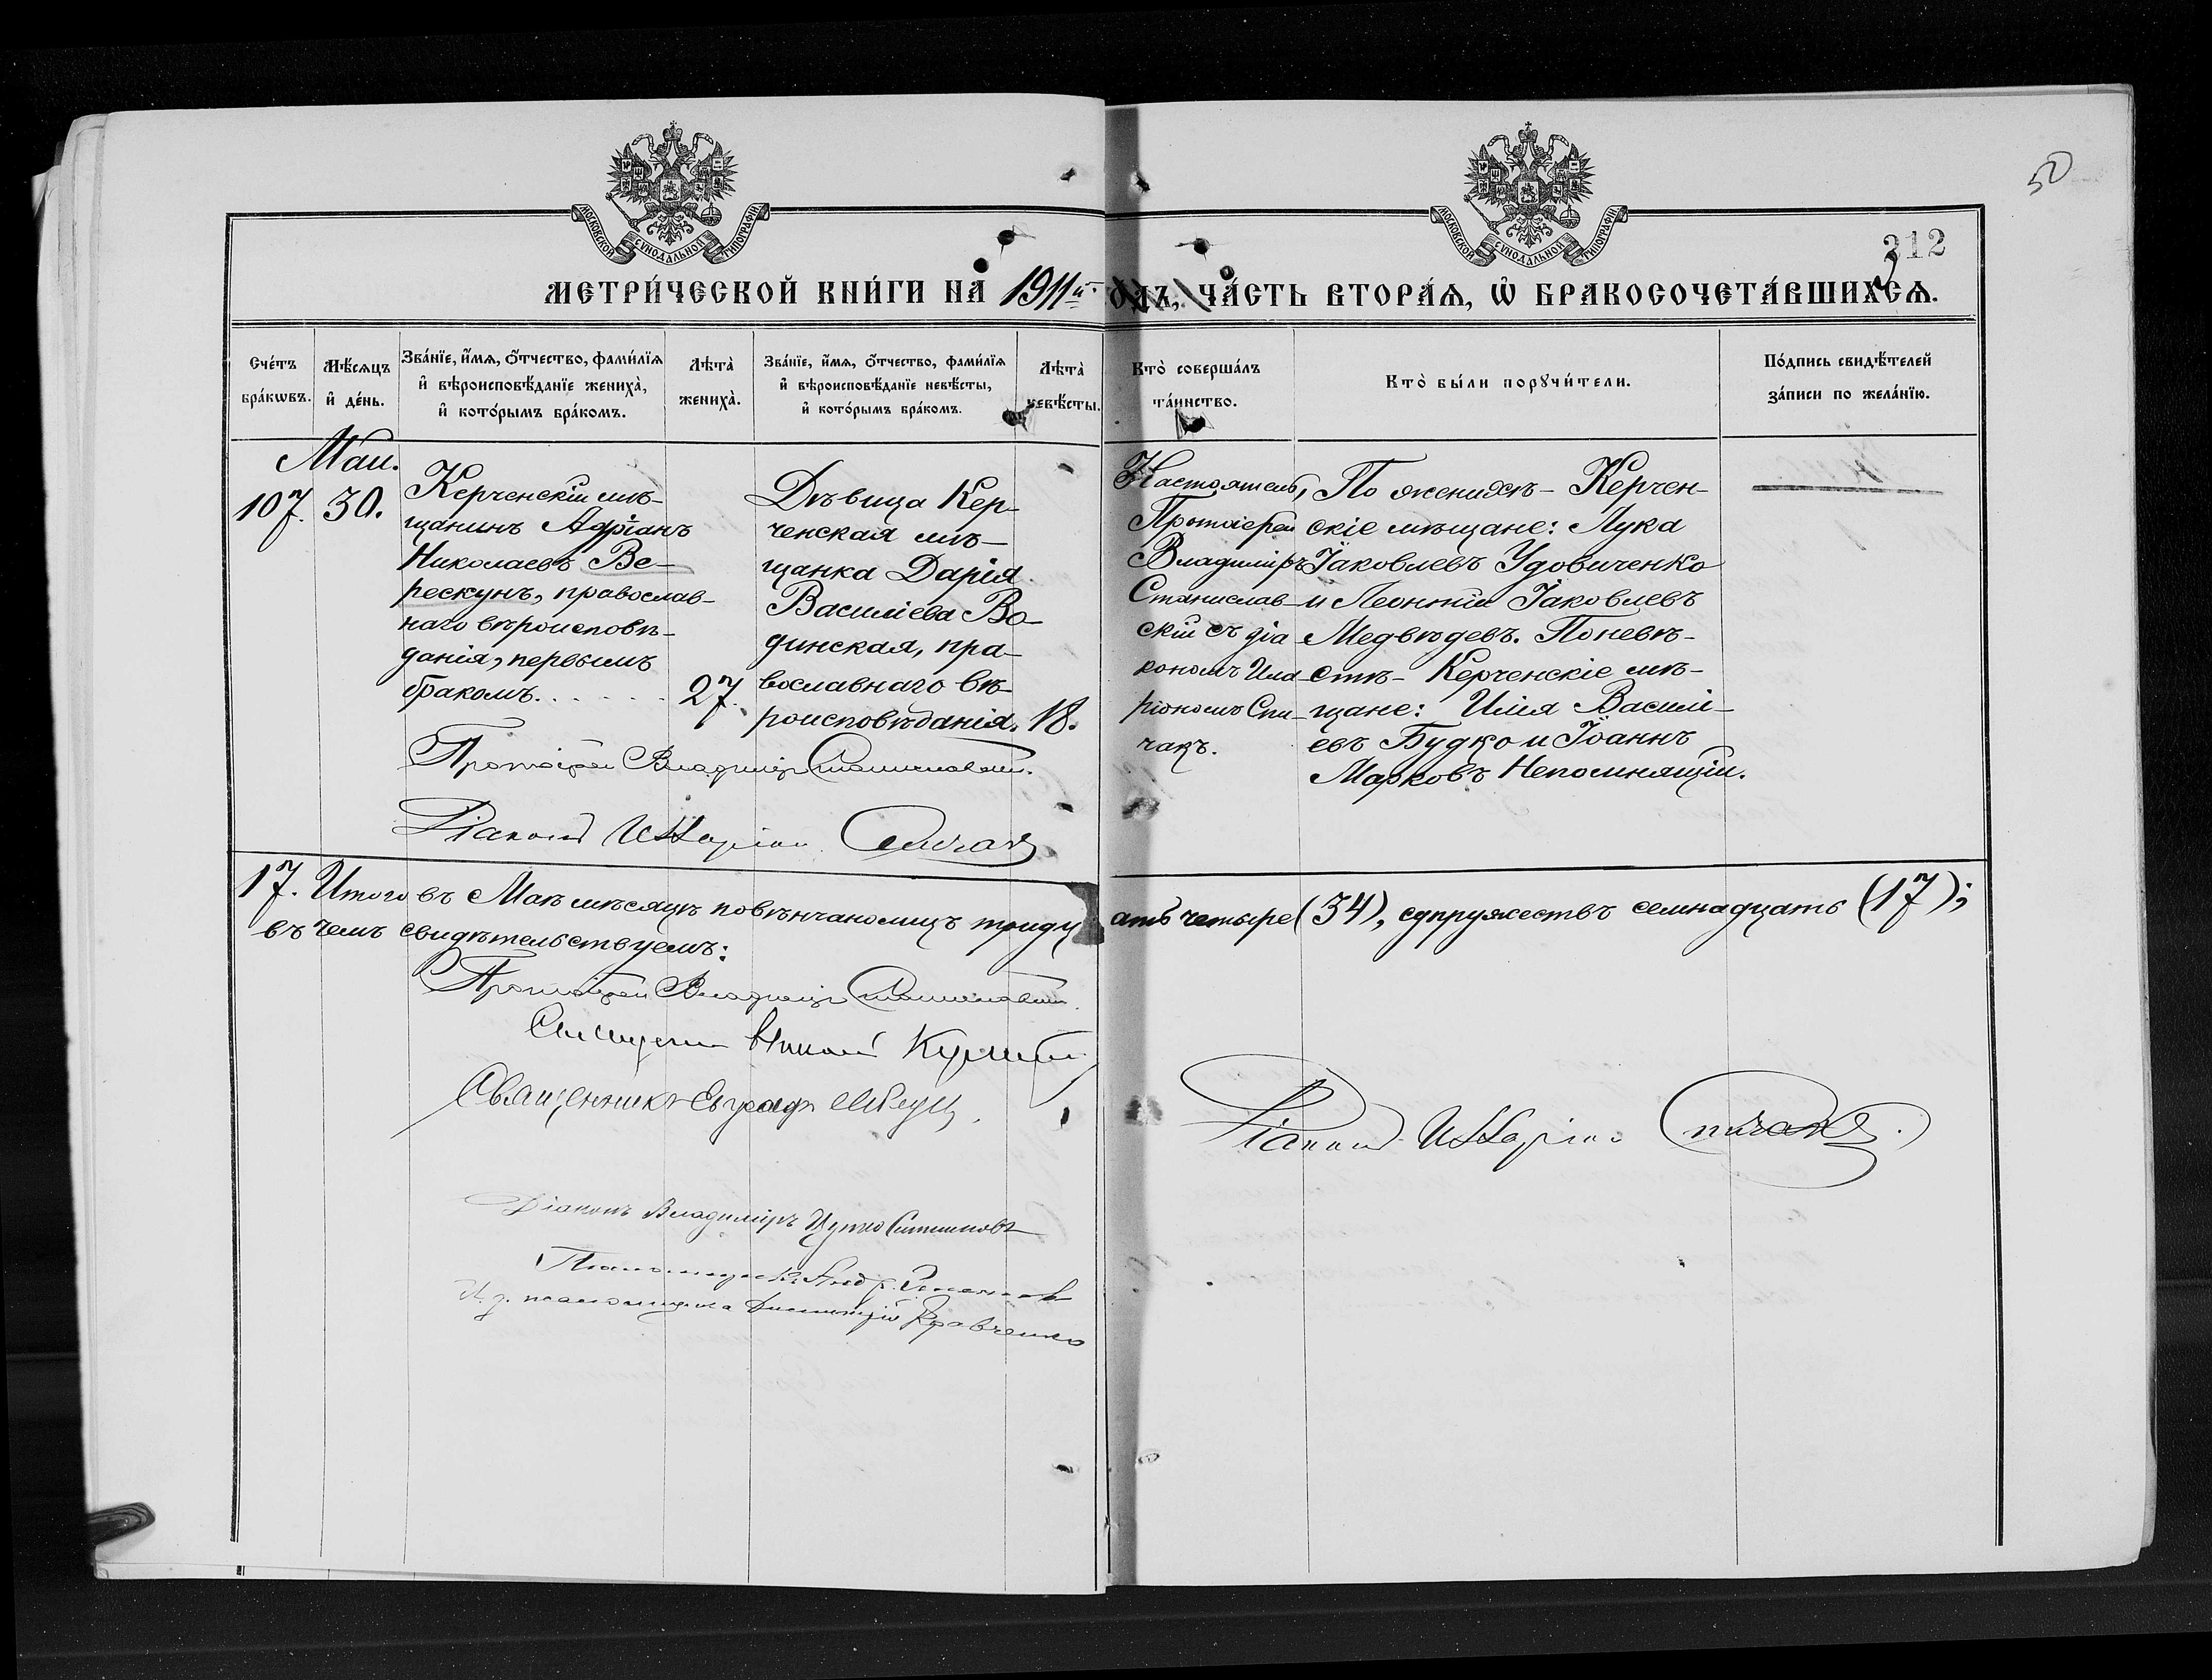 50
312
МОСКОВСКОЙ СѴНОДАЛЬНОЙ ТИПОГРАФІИ
МОСКОВСКОЙ СѴНОДАЛЬНОЙ ТИПОГРАФІИ
МЕТРИ́ЧЕСКОЙ КНИ́ГИ НА 1911й. ЧА́СТЬ ВТОРА́Ѧ, Ѡ҆ БРАКОСОЧЕТА́ВШИХСѦ.
Сче́тъ бра́кѡвъ.
Мѣ́сѧцъ и҆ де́нь.
Зва́нїе, и҆́мѧ, ѻ҆́тчество, фами́лїѧ и҆ вѣроисповѣ́данїе жениха̀, и҆ кото́рымъ бра́комъ.
Лѣта̀ жениха̀.
Зва́нїе, и҆́мѧ, ѻ҆́тчество, фами́лїѧ и҆ вѣроисповѣ́данїе невѣ́сты, и҆ кото́рымъ бра́комъ.
Лѣта̀ невѣ́сты.
Кто̀ соверша́лъ та́инство.
Кто̀ бы́ли порꙋчи́тели.
По́дпись свидѣ́телей за́писи по жела́нїю.
Маи.
107. 30.
Керченскій мѣ-
щанинъ Адріанъ
Николаевъ Ве-
рескунъ, православ-
наго вѣроисповѣ-
данія, первымъ
бракомъ. . . . . . . 27.
Дѣвица Кер-
ченская мѣ-
щанка Дарія
Василіева Во-
динская, пра-
вославнаго вѣ-
роисповѣданія. 18.
Настоятель,
Протоіерей
Владиміръ
Станислав-
скій съ діа
кономъ Ила-
ріономъ Спи-
чакъ.
По женихѣ - Керчен-
скіе мѣщане: Лука
Іаковлевъ Удовиченко
и Леонтій Іаковлевъ
Медвѣдевъ. По невѣ-
стѣ - Керченскіе мѣ-
щане: Илія Василі-
евъ Будко и Іоаннъ
Марковъ Непомнящій.
Протоіерей Владиміръ Станиславскій.
Діаконъ Иларіонъ Спичакъ
17. Итого въ Маѣ мѣсяцѣ повѣнчано лицъ тридцать четыре (34), супружествъ семнадцать (17);
въ чемъ свидѣтельствуемъ:
Протоіерей Владиміръ Станиславскій.
Священникъ
Священникъ Евграфъ
Діаконъ Иларіонъ Спичакъ.
Діаконъ Владиміръ
Псаломщикъ Андр.
И. д. псаломщика Димитрій Кравченко